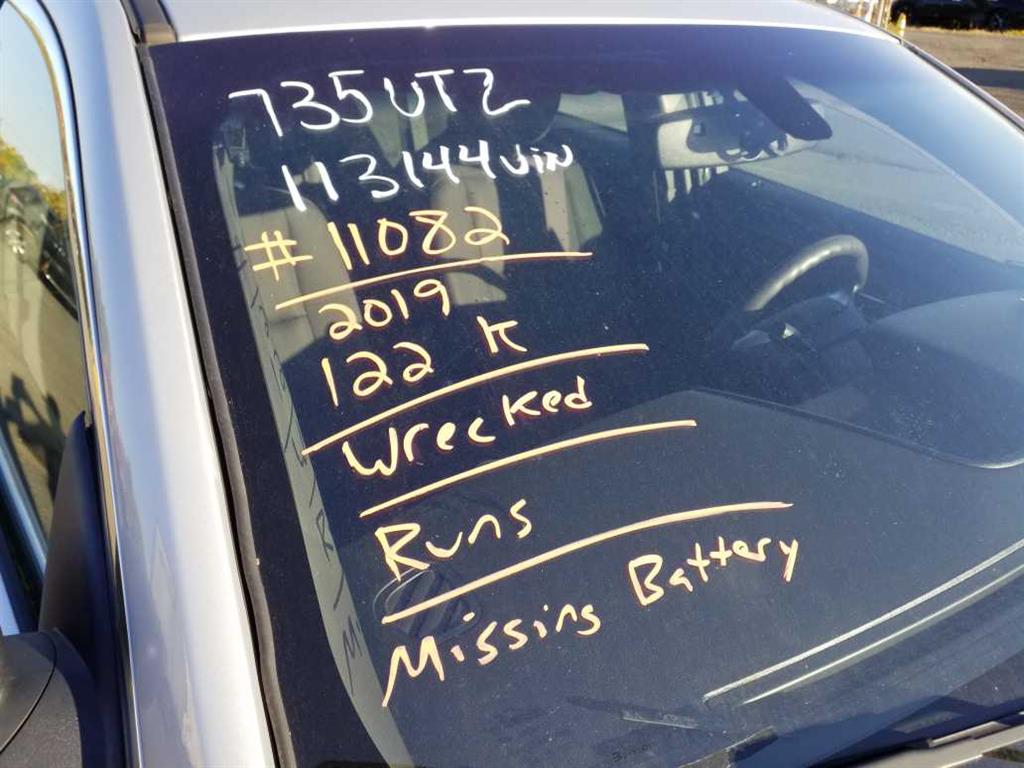 735UTZ
113144vin
#11082
2019
122 K
Wrecked
Runs
Missing Battery